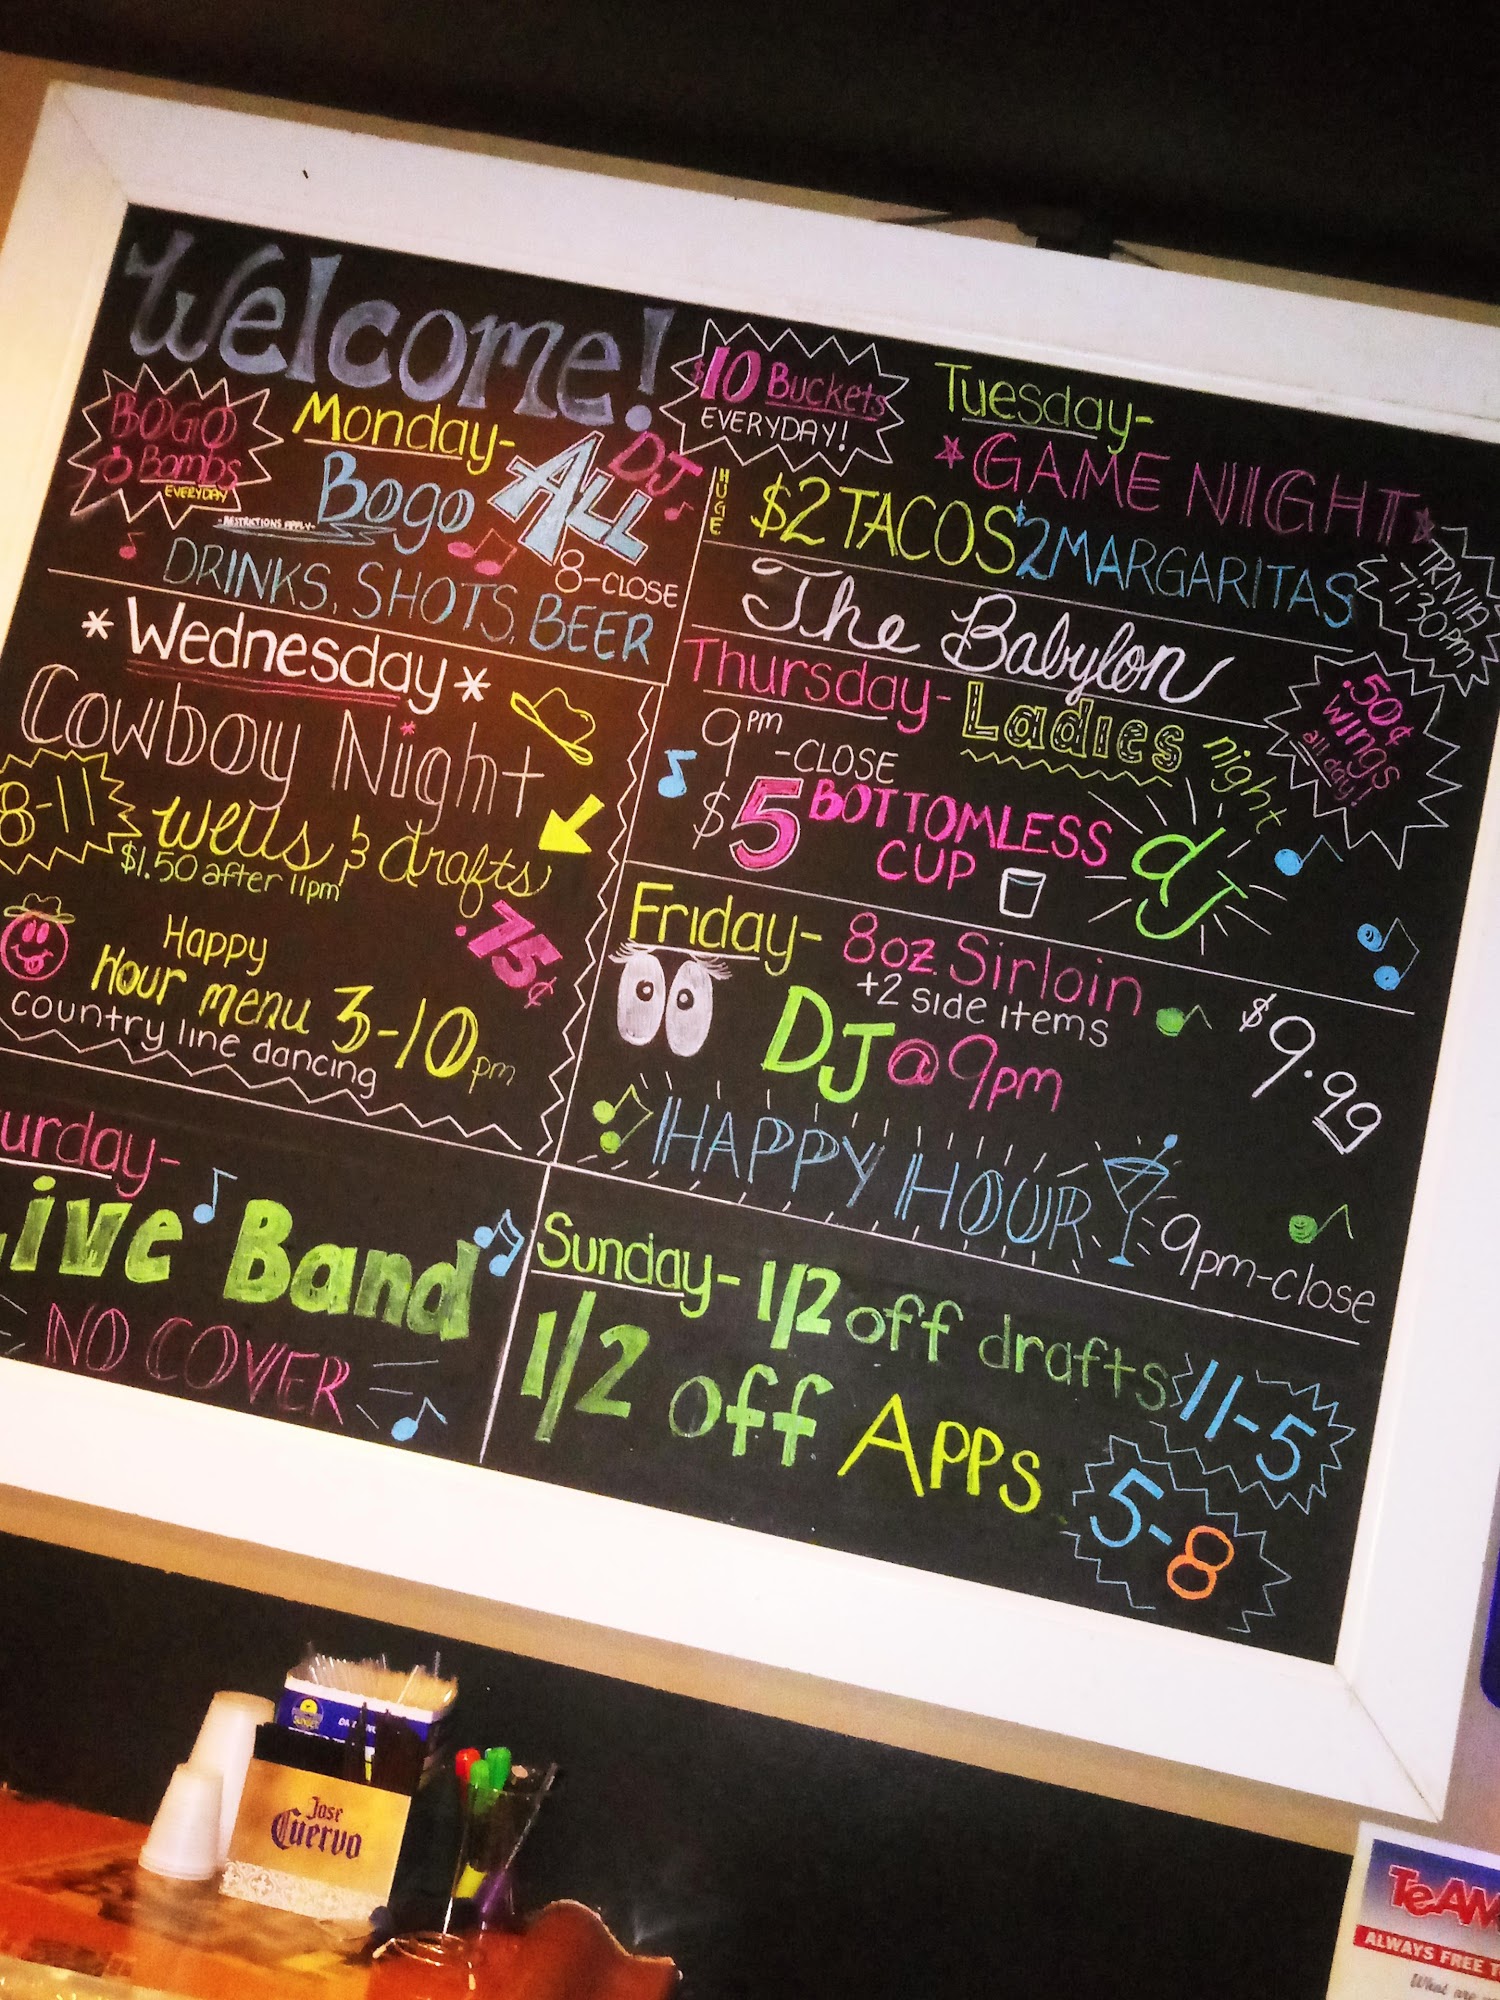 Welcome!
$10 Buckets
EVERYDAY!
BOGO
Bombs
EVERYDAY
Monday-
DJ
Bogo ALL
-RESTRICTIONS APPLY-
8-CLOSE
DRINKS, SHOTS, BEER
Tuesday-
GAME NIGHT
HUGE
$2 TACOS $2 MARGARITAS
TRIVIA
7:30pm
The Babylon
*Wednesday*
Cowboy Night
8-11
Wells & drafts
$1.50 after 11pm
.75¢
Happy
Hour menu 3-10pm
country line dancing
Thursday- Ladies night
9pm-CLOSE
$5 BOTTOMLESS
CUP
dJ
.50¢
Wings
all day!
Friday- 8oz. Sirloin
+2 side items
$9.99
DJ@9pm
HAPPY HOUR
9pm-close
urday-
Live Band
NO COVER
Sunday- 1/2 off drafts 11-5
1/2 off Apps 5-8
Jose
Cuervo
TeAM
ALWAYS FREE